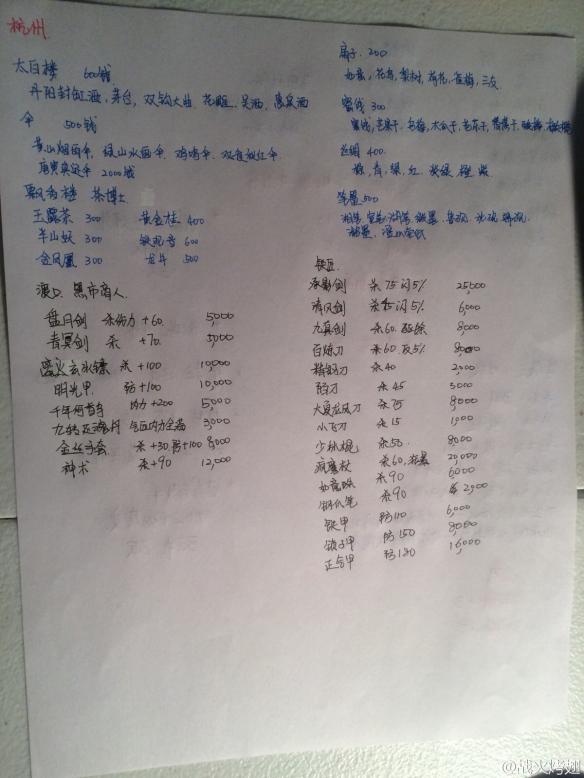 杭州
太白楼 600钱
丹阳封缸酒,茅台,双钩大曲,花雕,吴酒,惠泉酒
伞 500钱
黄山烟雨伞,绿山水画伞,鸡鸣伞,双夜放红伞
唐寅真迹伞 2000钱
飘香楼 茶博士
玉露茶 300 黄金桂 400
羊山蚁 300 铁观音 600
金凤凰 300 龙井 500
渡口 黑市商人
盘月剑 杀伤力 +60 5,000
青冥剑 杀 +70 5,000
玄冰镖 杀 +100 10,000
明光甲 防+100 10,000
千年何首乌 内力+200 5,000
九转还魂丹 气血内力全满 3,000
金丝手套 杀+30 防+100 8,000
神术 杀+90 12,000
扇子 200
如意,花鸟,梨树,荷花,雀梅,三友
蜜饯 300
蜜饯,芒果干,乌梅,木瓜干,
丝绸 400
棕,青,绿,红,紫
笔墨 500
湘笔,宣笔,湖笔,徽墨,鲁砚
铁匠
承影剑 杀75闪5% 25,000
清风剑 杀45闪5% 6,000
九真剑 杀60 8,000
百炼刀 杀60 反5% 8,000
精钢刀 杀40 2,000
陌刀 杀45 3000
大夏龙凤刀 杀75 8,000
小飞刀 杀15 1,000
少林棍 杀50 8,000
疯魔杖 杀60 20,000
杀90 6,000
钢爪笔 杀90 2,000
铁甲 防110 6,000
锁子甲 防150 8,000
正合甲 防180 16,000
@战火烤翅